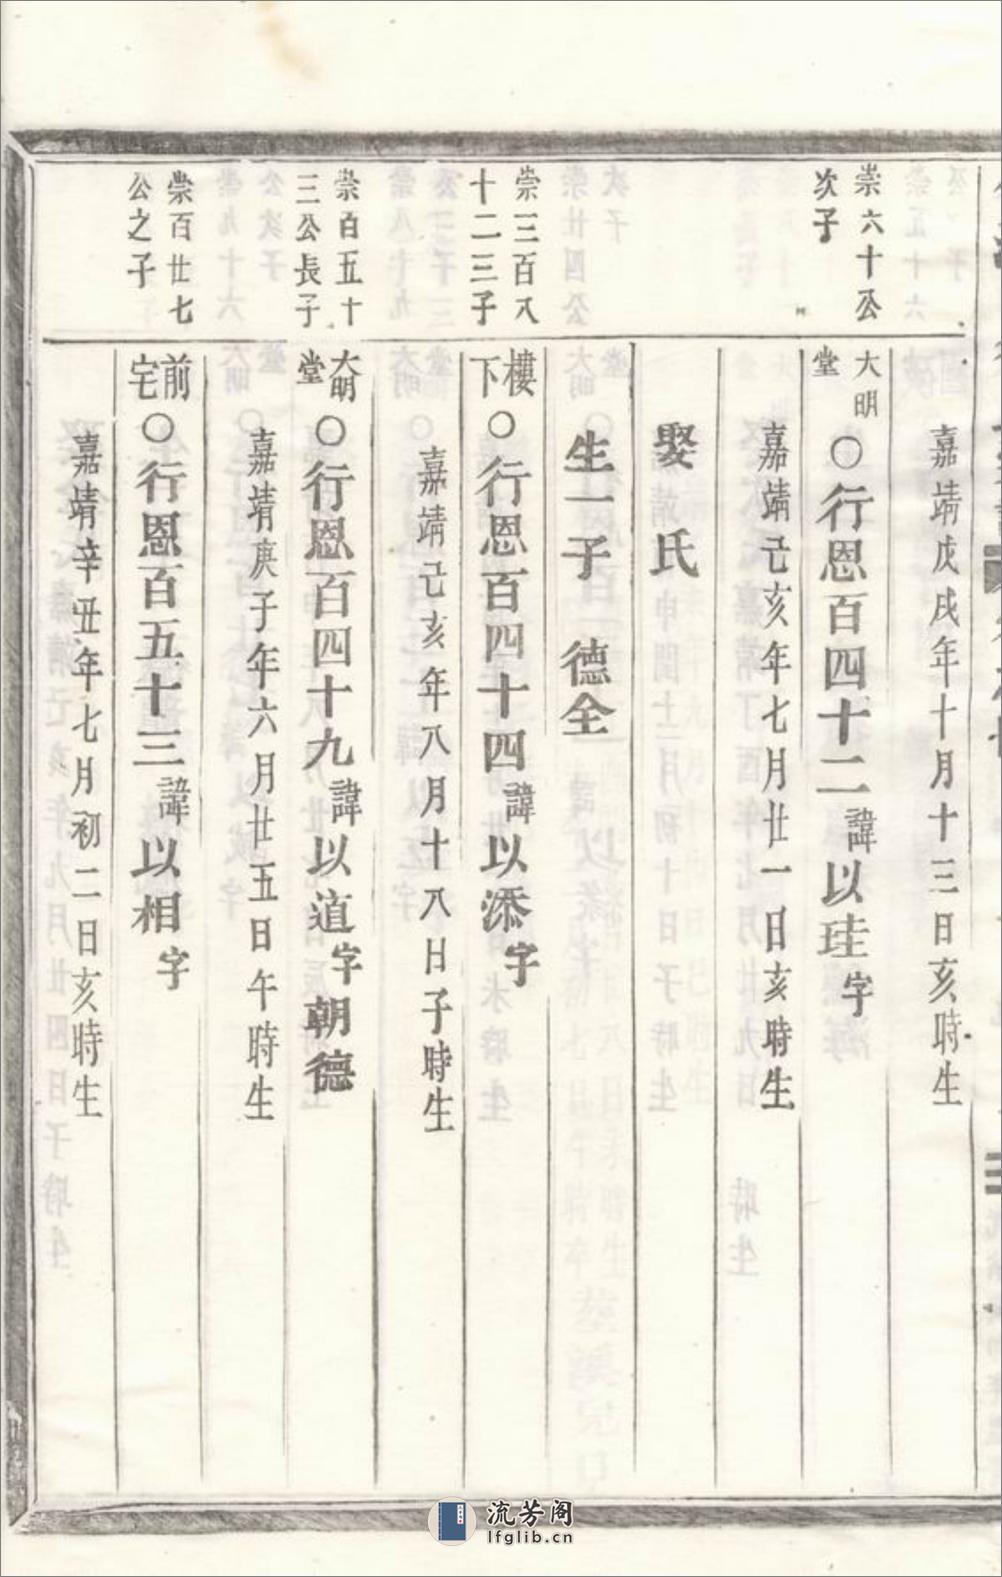 嘉靖戊戌年十月十三日亥時生
崇六十公
次子
大明
堂
○行恩百四十二諱以珪字
嘉靖己亥年七月廿一日亥時生
娶氏
生一子 德全
崇三百八
十二三子
樓
下
○行恩百四十四諱以添字
嘉靖己亥年八月十八日子時生
崇百五十
三公長子
大明
堂
○行恩百四十九諱以道字朝德
嘉靖庚子年六月廿五日午時生
崇百廿七
公之子
前
宅
○行恩百五十三諱以相字
嘉靖辛丑年七月初二日亥時生
流芳阁
lfglib.cn